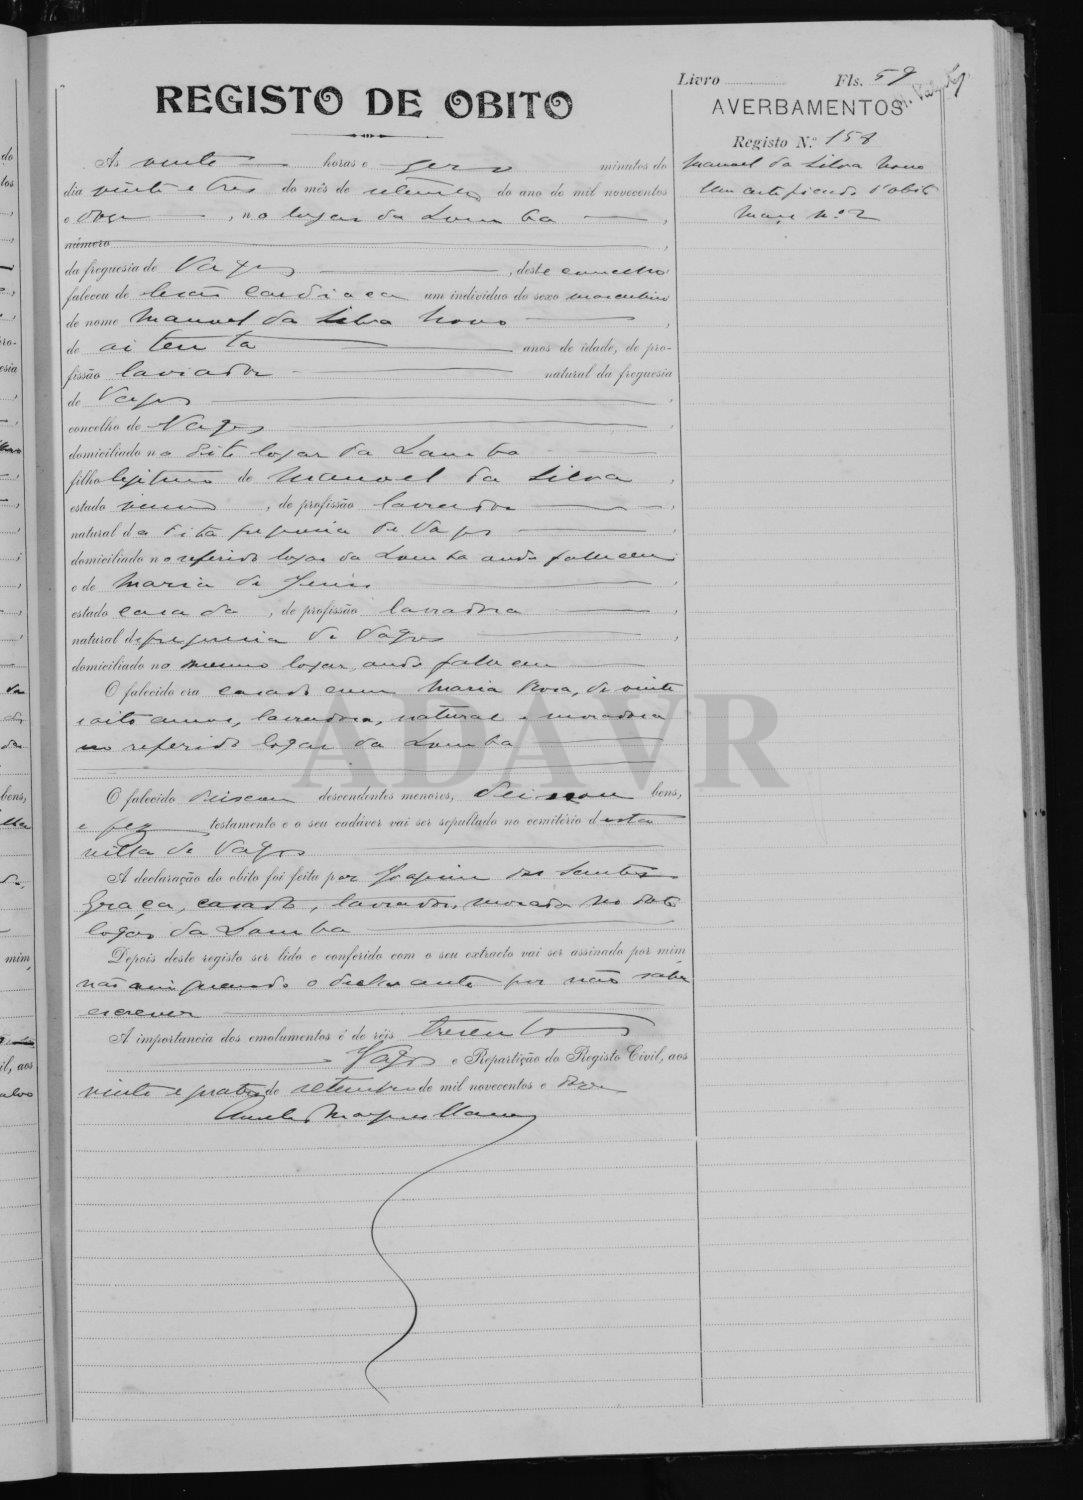 Livro Fls. 59
REGISTO DE OBITO
AVERBAMENTOS
Registo N.º 158
Manuel da Silva Novo
Um certificado d'obito
Maço nº 2
Ás vinte horas e zero minutos do
dia vinte e tres do mês de setembro do ano de mil novecentos
e doze, no logar da Lomba,
número
da freguesia de Vagos, deste concelho
faleceu de lesão cardiaca um individuo do sexo masculino
de nome Manuel da Silva Novo,
de oitenta anos de idade, de pro-
fissão lavrador natural da freguesia
de Vagos,
concelho de Vagos,
domiciliado no dito logar da Lomba
filho legitimo de Manuel da Silva,
estado, de profissão lavrador,
natural da dita freguesia de Vagos,
domiciliado no referido logar da Lomba onde faleceu
e de Maria de Jesus,
estado casada, de profissão lavradora,
natural da freguesia de Vagos,
domiciliado no mesmo logar onde faleceu
O falecido era casado com Maria Rosa, de
e oito annos, lavradora, natural e moradora
no referido logar da Lomba
O falecido deixou descendentes menores, deixou bens,
e fez testamento e o seu cadáver vai ser sepultado no cemitério desta
villa de Vagos
A declaração do obito foi feita por Joaquim dos Santos
Graça, casado, lavrador, morador no dito
logar da Lomba
Depois deste registo ser lido e conferido com o seu extracto vai ser assinado por mim,
não assignando o declarante por não saber
escrever
A importancia dos emolumentos é de réis trezentos
Vagos e Repartição do Registo Civil, aos
vinte e quatro de setembro de mil novecentos e doze
ADAVR